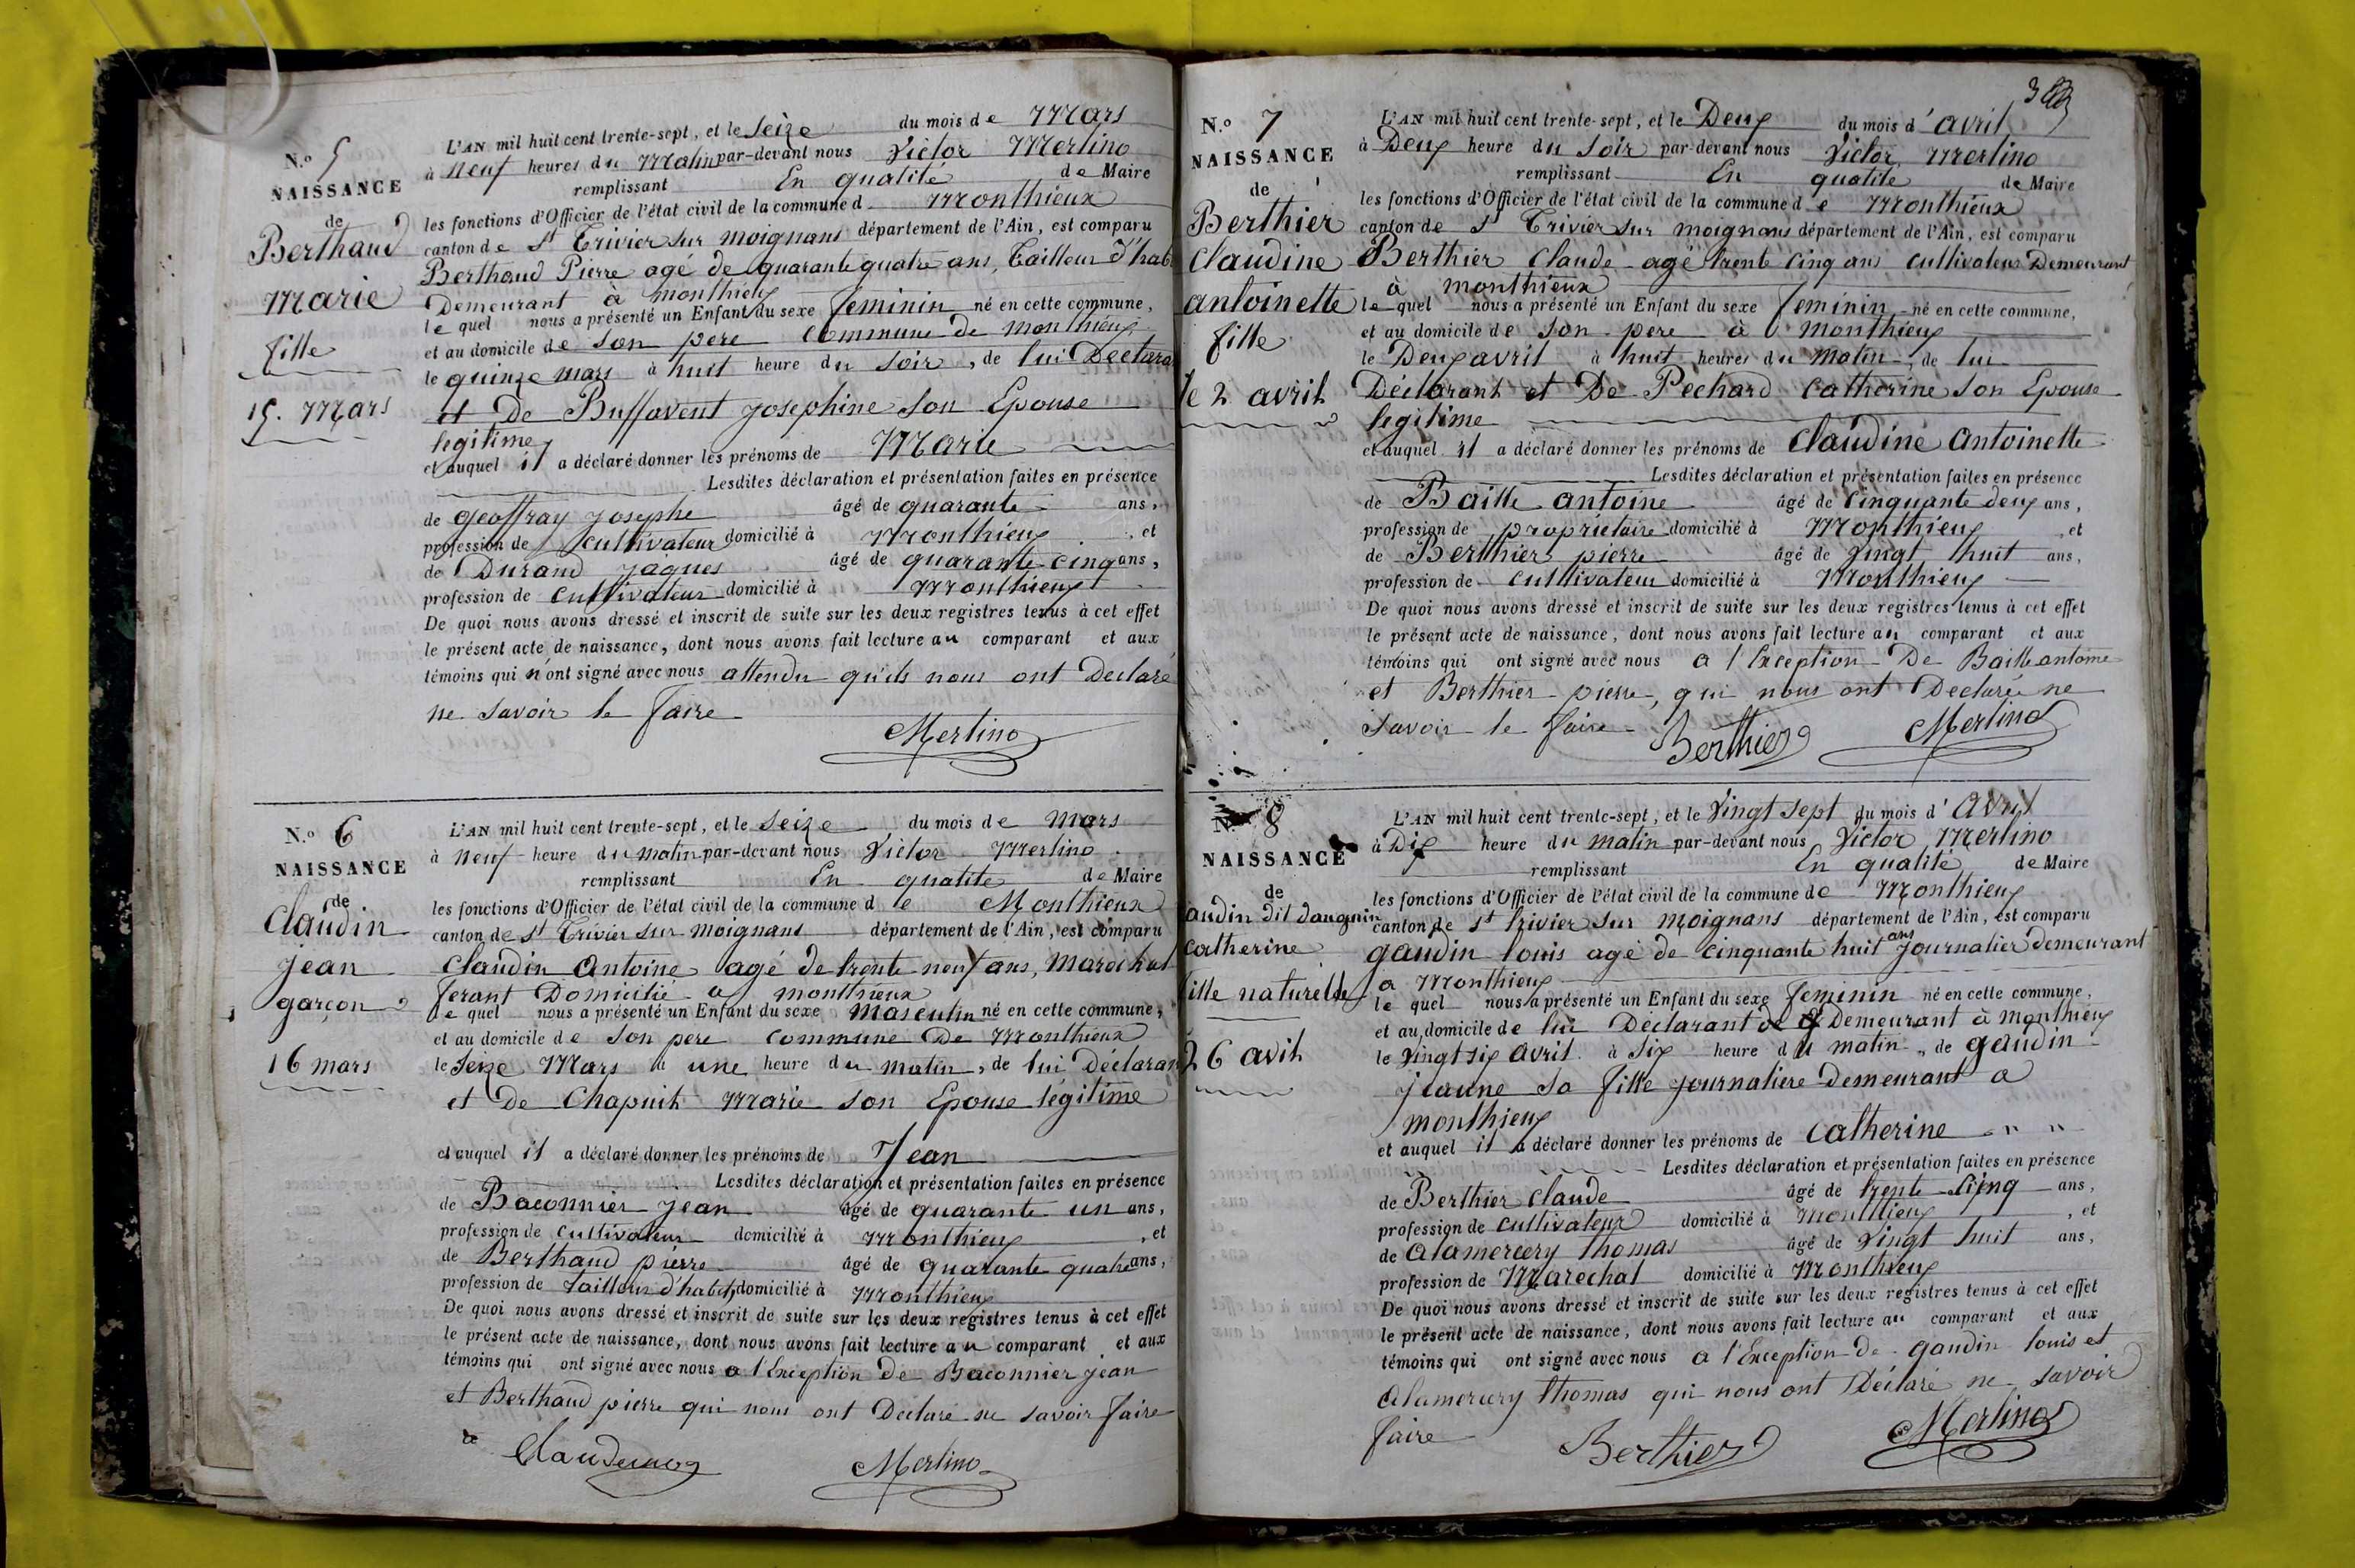 N.o 5
NAISSANCE
de
Berthaud
Marie
fille
15. Mars
L'AN mil huit cent trente-sept, et le Seize du mois de Mars
à neuf heures du Matin par-devant nous Victor Merlino
remplissant En qualité de Maire
les fonctions d'Officier de l'état civil de la commune d Monthieux
canton de St Trivier sur moignans département de l'Ain, est comparu
Berthaud Pierre agé de quarante quatre ans, Tailleur d'hab
Demeurant à monthieux
le quel nous a présenté un Enfant du sexe feminin né en cette commune,
et au domicile de son pere commune de monthieux
le quinze mars à huit heure du soir, de lui Declara
et De Buffavent Josephine son Epouse
legitime
et auquel il a déclaré donner les prénoms de Marie
Lesdites déclaration et présentation faites en présence
de Geoffray Josephe âgé de quarante ans,
profession de Cultivateur domicilié à Monthieux, et
de Durand Jaques âgé de quarante-cinq ans,
profession de Cultivateur domicilié à Monthieux
De quoi nous avons dressé et inscrit de suite sur les deux registres tenus à cet effet
le présent acte de naissance, dont nous avons fait lecture au comparant et aux
témoins qui n'ont signé avec nous attendu qu'ils nous ont Declaré
ne savoir le faire
Merlino
N.o 6
NAISSANCE
de
Claudin
Jean
garçon
16 mars
L'AN mil huit cent trente-sept, et le Seize du mois de Mars
à neuf heure du matin par-devant nous Victor Merlino
remplissant En qualité de Maire
les fonctions d'Officier de l'état civil de la commune d e Monthieux
canton de St Trivier sur moignans département de l'Ain, est comparu
Claudin Antoine agé de trente neuf ans, Marechal
ferant Domicilié a monthieux
le quel nous a présenté un Enfant du sexe Masculin né en cette commune,
et au domicile de Son pere Commune De Monthieux
le Seize Mars à une heure du matin, de lui Déclaran
et De Chapuit Marie son Epouse légitime
et auquel il a déclaré donner les prénoms de Jean
Lesdites déclaration et présentation faites en présence
de Baconnier Jean âgé de quarante un ans,
profession de Cultivateur domicilié à Monthieux, et
de Berthaud pierre âgé de quarante quatre ans,
profession de tailleur d'habit, domicilié à Monthieux
De quoi nous avons dressé et inscrit de suite sur les deux registres tenus à cet effet
le présent acte de naissance, dont nous avons fait lecture au comparant et aux
témoins qui ont signé avec nous a l'Exception De Baconnier jean
et Berthaud pierre qui nous ont Declaré ne savoir faire
Merlino
N.o 7
NAISSANCE
de
Berthier
Claudine
antoinette
fille
le 2 avril
L'AN mil huit cent trente-sept, et le Deux du mois d'avril
à Deux heure du Soir par-devant nous Victor Merlino
remplissant En qualité de Maire
les fonctions d'Officier de l'état civil de la commune de Monthieux
canton de St Trivier sur moignans département de l'Ain, est comparu
Berthier Claude agé trente cinq ans cultivateur Demeurant
à monthieux
le quel nous a présenté un Enfant du sexe feminin né en cette commune,
et au domicile de son pere à monthieux
le Deux avril à huit heures du matin, de lui
Déclarant et De Pechard Catherine son Epouse
legitime
et auquel il a déclaré donner les prénoms de Claudine Antoinette
Lesdites déclaration et présentation faites en présence
de Baille antoine âgé de Cinquante deux ans,
profession de proprietaire domicilié à Monthieux, et
de Berthier pierre âgé de vingt huit ans,
profession de cultivateur domicilié à Monthieux
De quoi nous avons dressé et inscrit de suite sur les deux registres tenus à cet effet
le présent acte de naissance, dont nous avons fait lecture au comparant et aux
témoins qui ont signé avec nous a l'Exception De Baille antoine
et Berthier pierre, qui nous ont Declaré ne
savoir le faire
Berthier Merlino
N.o 8
NAISSANCE
de
audin dit dauguin
catherine
fille naturelle
26 avil
L'AN mil huit cent trente-sept, et le Vingt sept du mois d'Avril
à Dix heure du matin par-devant nous Victor Merlino
remplissant En qualité de Maire
les fonctions d'Officier de l'état civil de la commune de Monthieux
canton de St trivier sur moignans département de l'Ain, est comparu
gaudin louis agé de Cinquante huit ans Journalier demeurant
a Monthieux
le quel nous a présenté un Enfant du sexe feminin né en cette commune,
et au domicile de lui Déclarant Demeurant à monthieux
le Vingt six Avril à Six heure du matin, de gaudin
jeanne sa fille journaliere Demeurant a
monthieux
et auquel il a déclaré donner les prénoms de Catherine
Lesdites déclaration et présentation faites en présence
de Berthier Claude âgé de trente-cinq ans,
profession de cultivateur domicilié à Monthieux, et
de Alamercery thomas âgé de Vingt huit ans,
profession de Marechal domicilié à Monthieux
De quoi nous avons dressé et inscrit de suite sur les deux registres tenus à cet effet
le présent acte de naissance, dont nous avons fait lecture au comparant et aux
témoins qui ont signé avec nous a l'Exception de gaudin louis et
Alamercery thomas qui nous ont Déclaré ne savoir
faire
Berthier Merlino